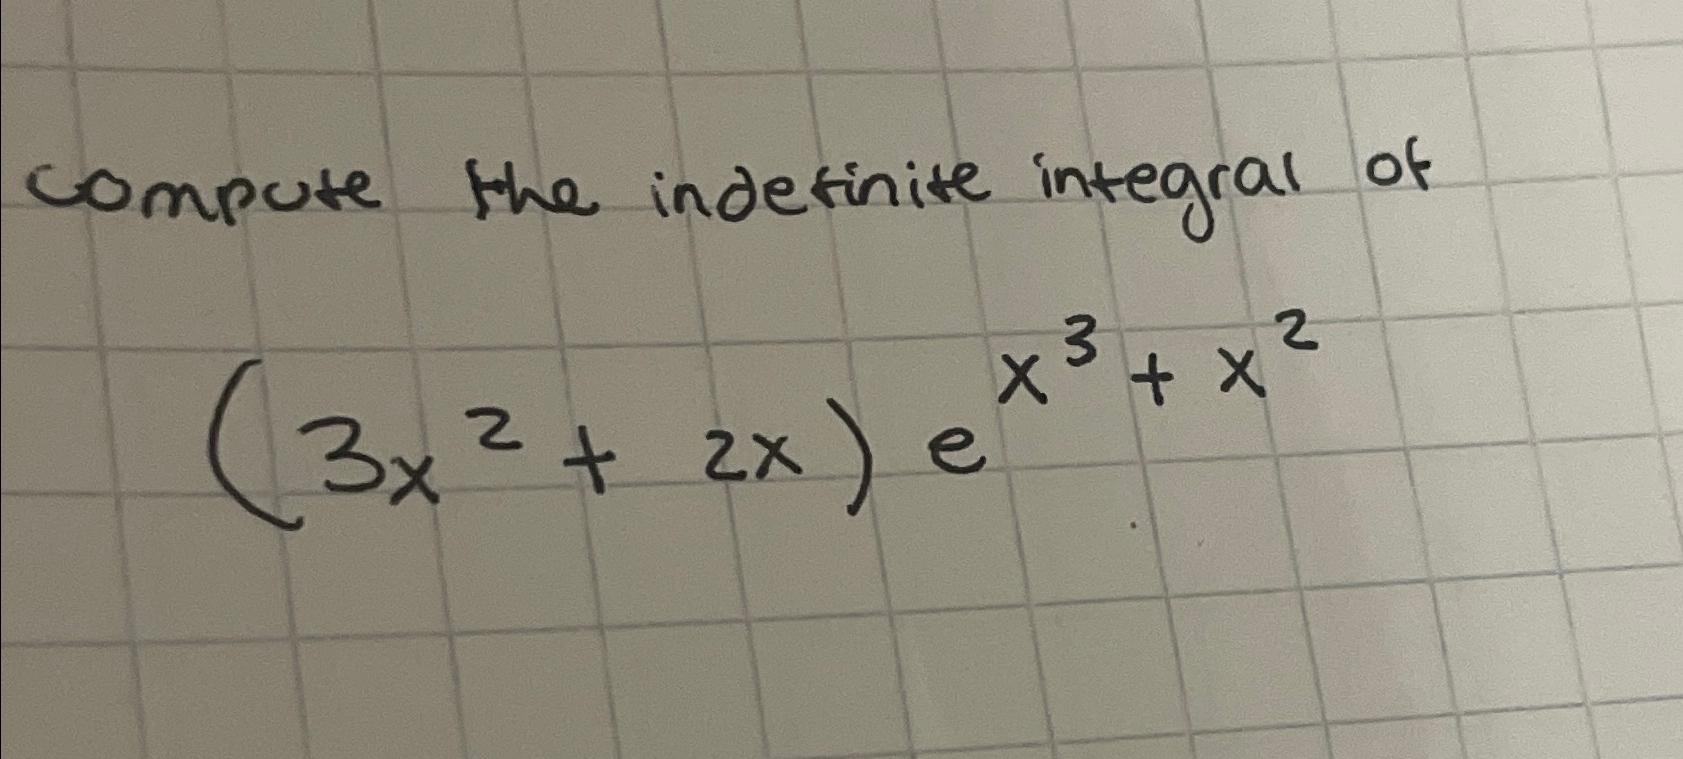 compute the indefinite integral of
(3x² + 2x) e^(x³ + x²)